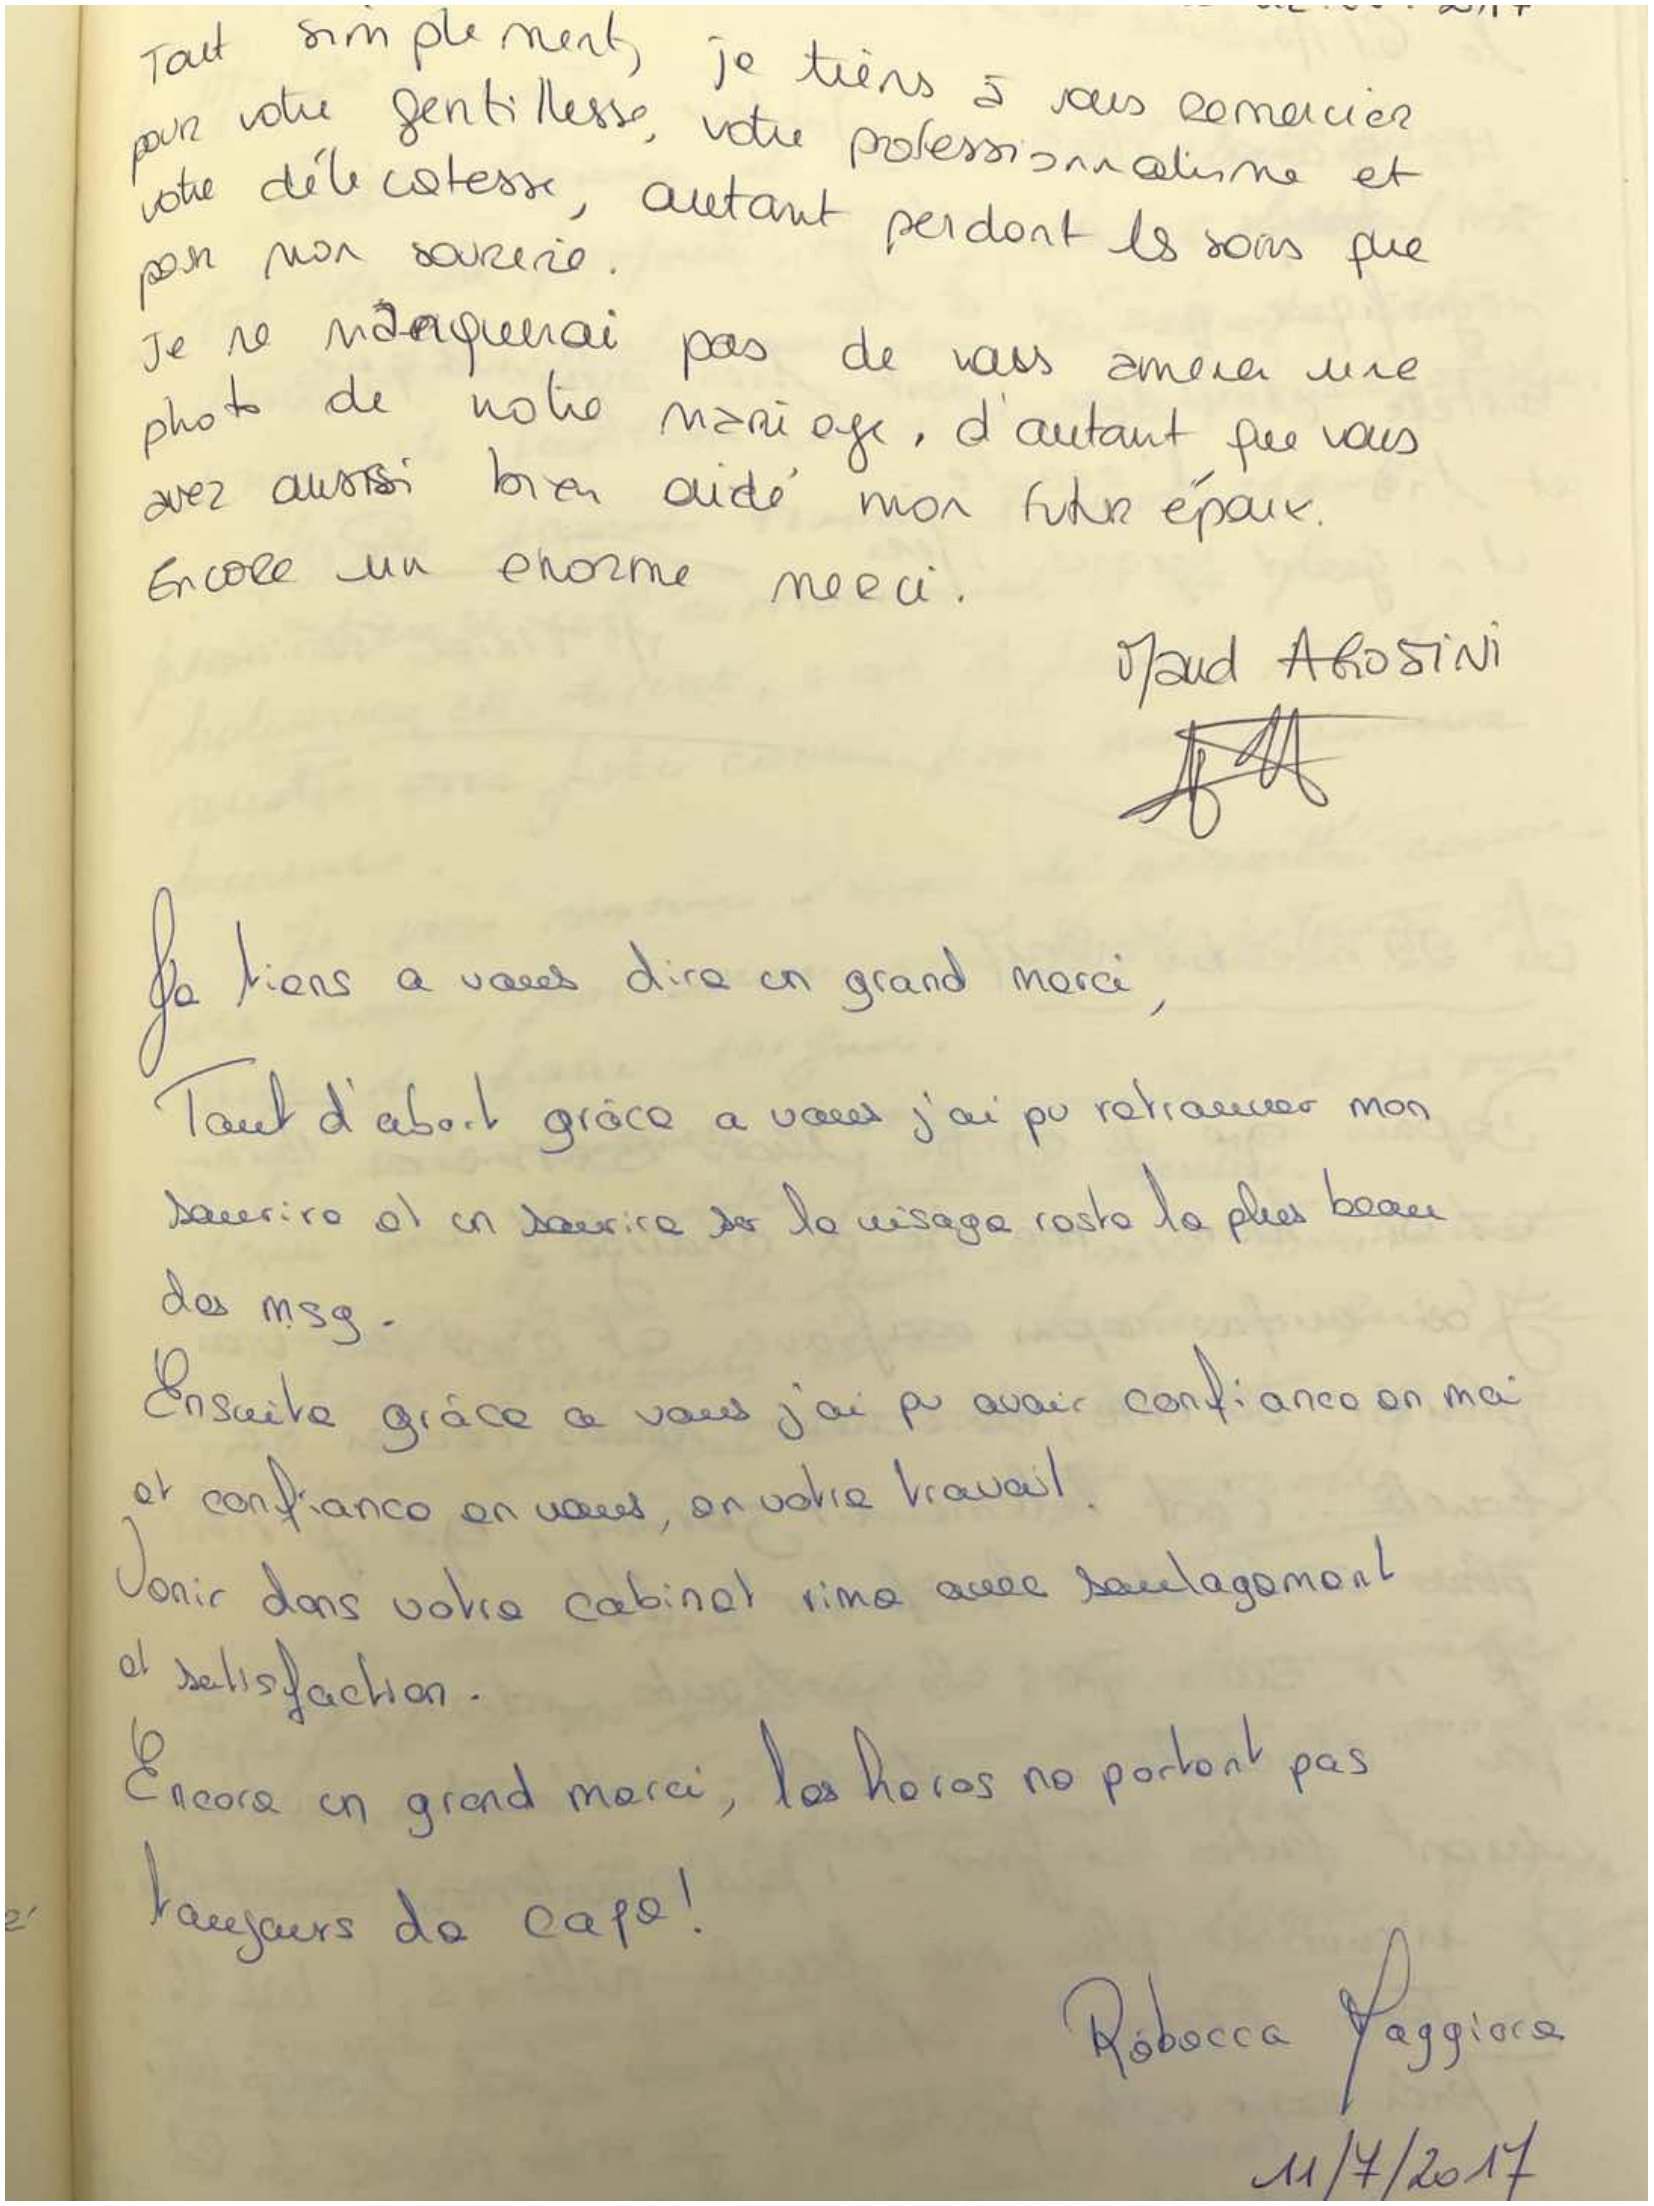 2017
Tout simplement, je tiens à vous remercier
pour votre gentillesse, votre professionnalisme et
votre délicatesse, autant pendant les soins que
pour mon sourire.
Je ne manquerai pas de vous amener une
photo de notre mariage, d'autant que vous
avez aussi bien aidé mon futur époux.
Encore un énorme merci.
Maud AGOSTINI
Je tiens a vous dire un grand merci,
Tout d'abort grâce a vous j'ai pu retrouver mon
sourire et un sourire sur le visage reste le plus beau
des msg.
Ensuite grâce a vous j'ai pu avoir confiance en moi
et confiance en vous, en votre travail.
Venir dans votre cabinet rime avec soulagement
et satisfaction.
Encore un grand merci, les heros ne portent pas
toujours de cape!
Rébecca
11/7/2017